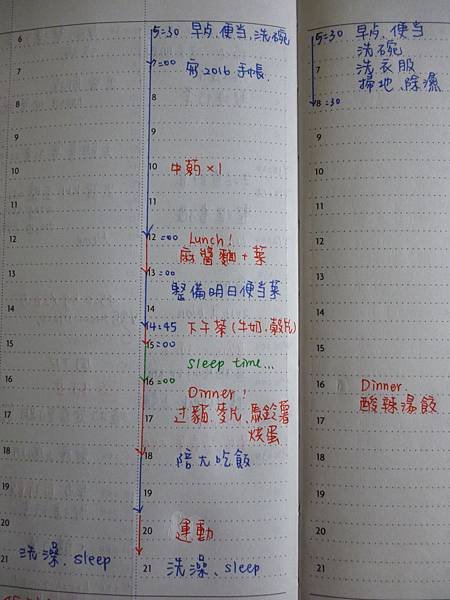 6
5:30 早点、便当、洗碗
7:00 寫2016手帳
10
中药×1
11
12:00 Lunch!
麻醬麵+菜
13:00
整備明日便当菜
14
14:45 下午茶(牛奶、穀片)
15:00
sleep time...
16:00
Dinner!
麥片、馬鈴薯
烤蛋
17
18
陪尢吃飯
19
20
運動
21
洗澡、sleep
洗澡、sleep
5:30 早点、便当
洗碗
7
洗衣服
掃地、除濕
8:30
9
10
11
12
13
14
15
16
Dinner.
酸辣湯餃
17
18
19
20
21